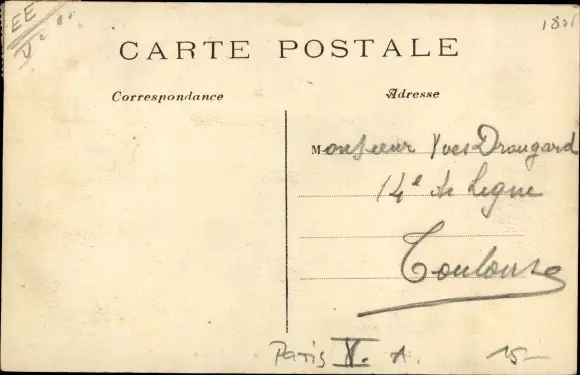 EE
V
1801
CARTE POSTALE
Correspondance
Adresse
Monsieur Yves Drougard
14e de Ligne
Toulouse
Paris X. A.
15-